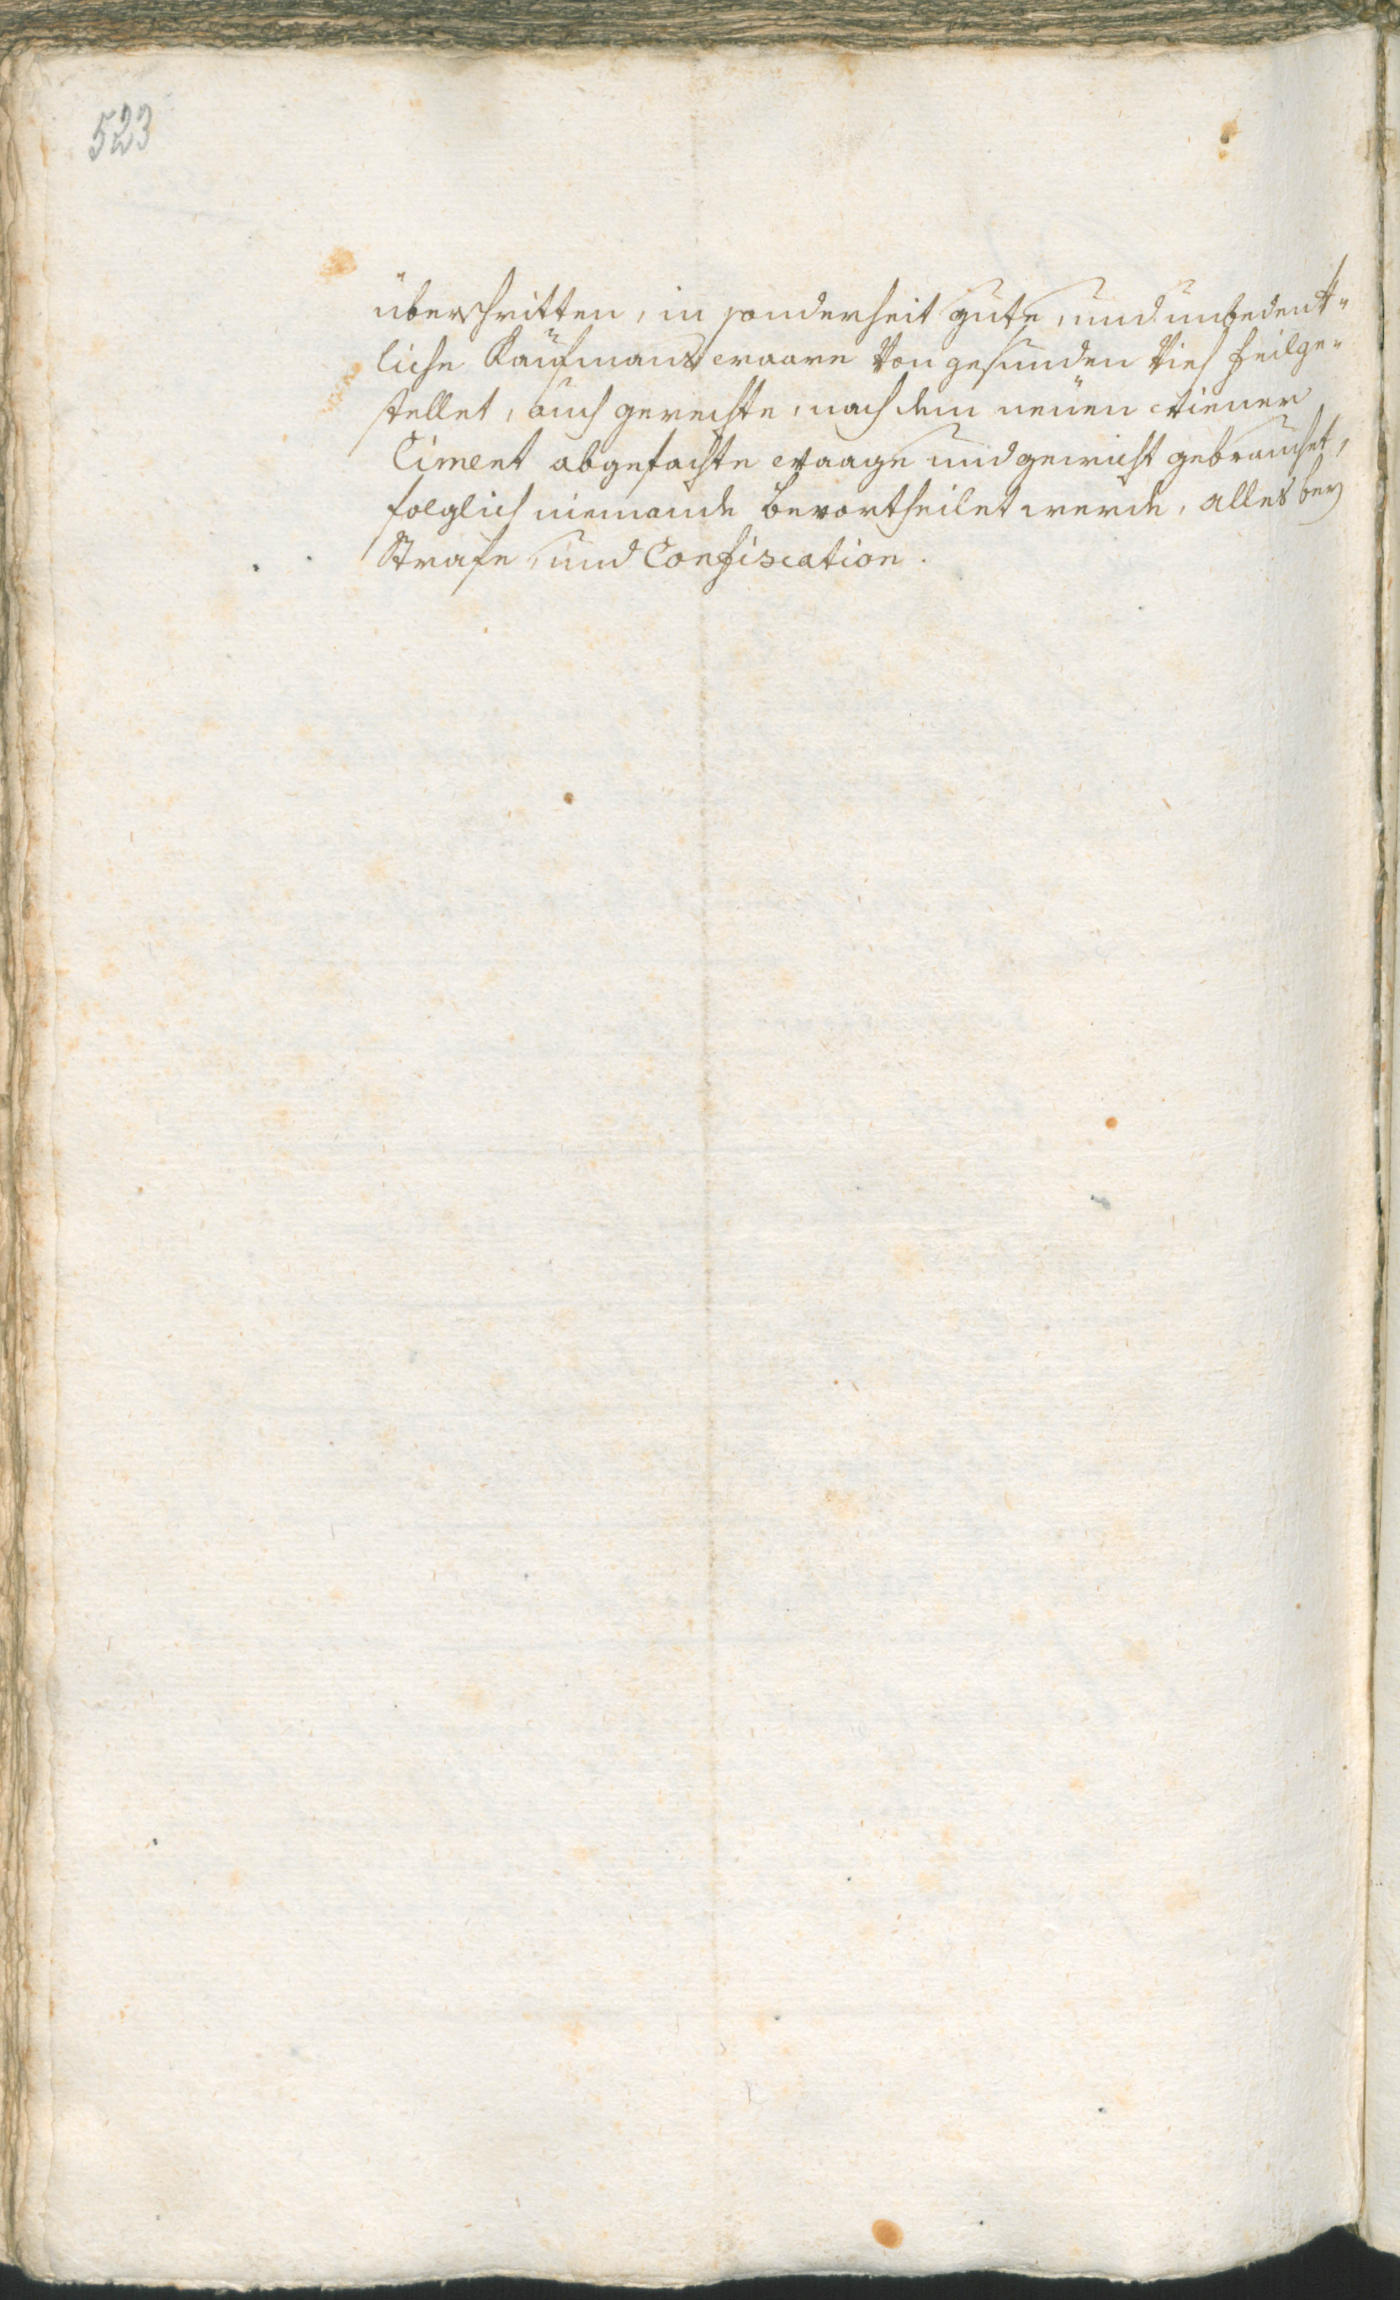 523
überschritten, in sonderheit gute, und unbedenk„
liche Kaufmanswaare von gesunden Vieh feilge„
stellet, auch gerechte, nach dem neüen Wiener
Ciment abgefachte Waage und gewicht gebrauchet,
folglich niemande bevortheilet werde, alles bey
Strafe, und Confiscation.